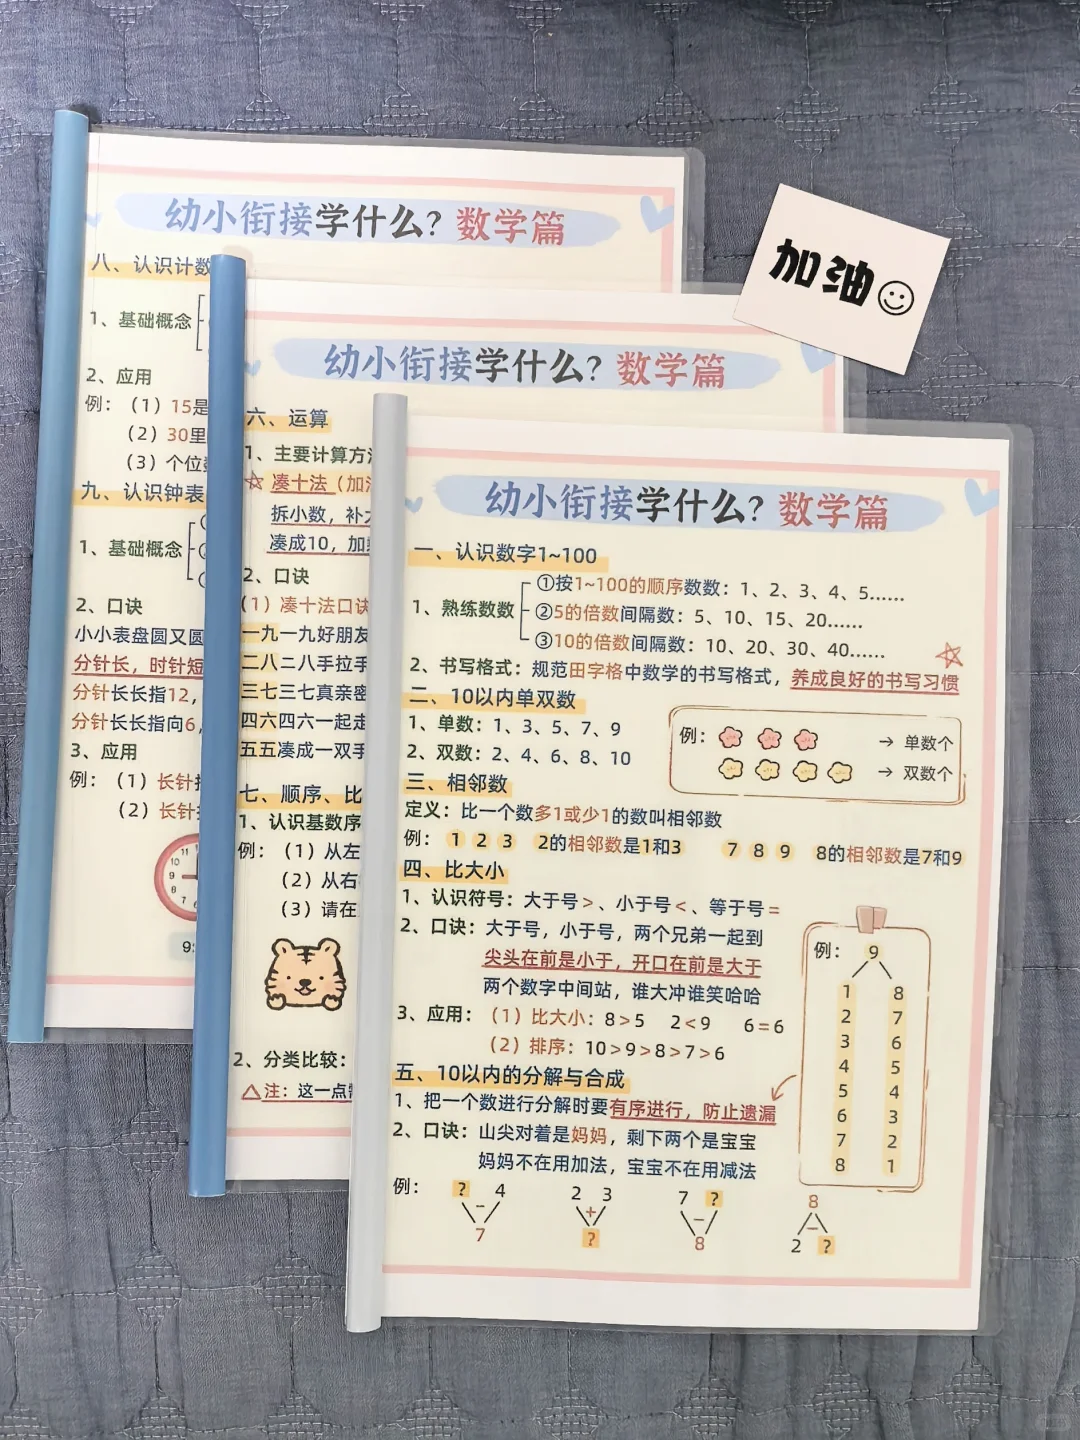 幼小衔接学什么？数学篇
八、认识计数
1、基础概念
2、应用
例：（1）15是
（2）30里
（3）个位
九、认识钟表
1、基础概念
2、口诀
小小表盘圆又圆
分针长，时针短
分针长长指12，
分针长长指向6，
3、应用
例：（1）长针
（2）长针
11
10
9
8
7
9:
幼小衔接学什么？数学篇
六、运算
1、主要计算方
凑十法（加
拆小数，补
凑成10，加
2、口诀
（1）凑十法口诀
一九一九好朋友
二八二八手拉手
三七三七真亲密
四六四六一起走
五五凑成一双手
七、顺序、比
1、认识基数序
例：（1）从左
（2）从右
（3）请在
2、分类比较：
注：这一点
加油
幼小衔接学什么？数学篇
一、认识数字1~100
1、熟练数数
①按1~100的顺序数数：1、2、3、4、5……
②5的倍数间隔数：5、10、15、20……
③10的倍数间隔数：10、20、30、40……
2、书写格式：规范田字格中数学的书写格式，养成良好的书写习惯
二、10以内单双数
1、单数：1、3、5、7、9
2、双数：2、4、6、8、10
例：
→ 单数个
→ 双数个
三、相邻数
定义：比一个数多1或少1的数叫相邻数
例：1 2 3 2的相邻数是1和3 7 8 9 8的相邻数是7和9
四、比大小
1、认识符号：大于号>、小于号<、等于号=
2、口诀：大于号，小于号，两个兄弟一起到
尖头在前是小于，开口在前是大于
两个数字中间站，谁大冲谁笑哈哈
3、应用：（1）比大小：8>5 2<9 6=6
（2）排序：10>9>8>7>6
五、10以内的分解与合成
1、把一个数进行分解时要有序进行，防止遗漏
2、口诀：山尖对着是妈妈，剩下两个是宝宝
妈妈不在用加法，宝宝不在用减法
例：
? 4
-
7
2 3
+
?
7 ?
-
8
8
-
2 ?
例：9
1 8
2 7
3 6
4 5
5 4
6 3
7 2
8 1